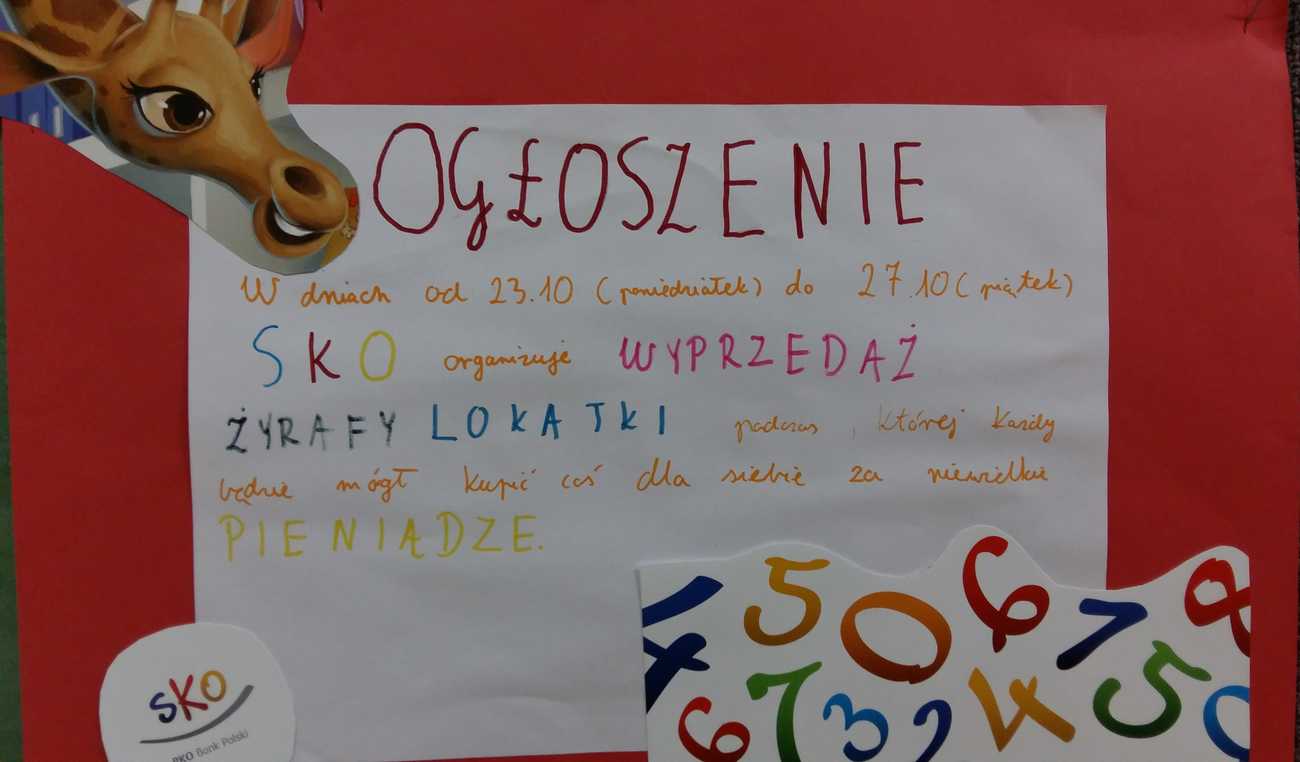 OGŁOSZENIE
W dniach od 23.10 (poniedziałek) do 27.10 (piątek)
SKO organizuje WYPRZEDAŻ
ŻYRAFY LOKATKI podczas, której każdy
będzie mógł kupić coś dla siebie za niewielkie
PIENIĄDZE.
5 0 6 1 8
4 5
6 7 3 2 4
SKO
PKO Bank Polski